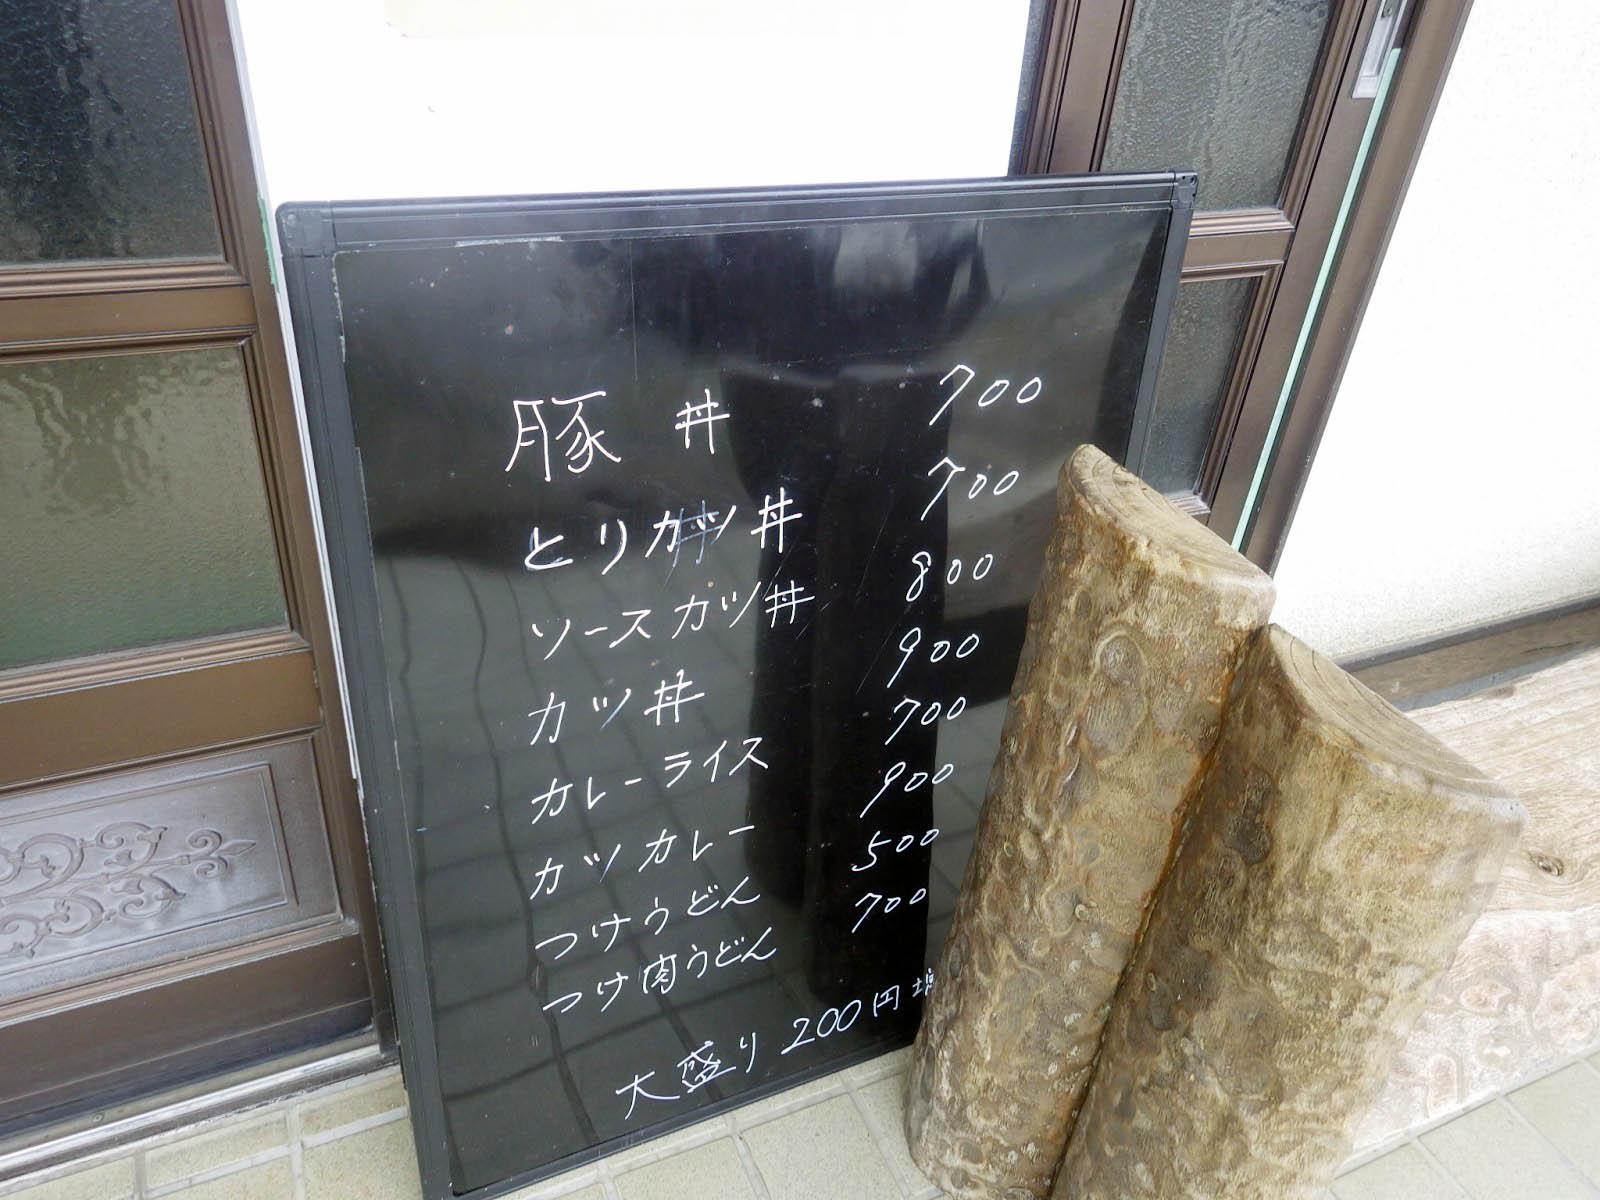 豚丼 700
とりカツ丼 700
ソースカツ丼 800
カツ丼 900
カレーライス 700
カツカレー 900
つけうどん 500
つけ肉うどん 700
大盛り 200円